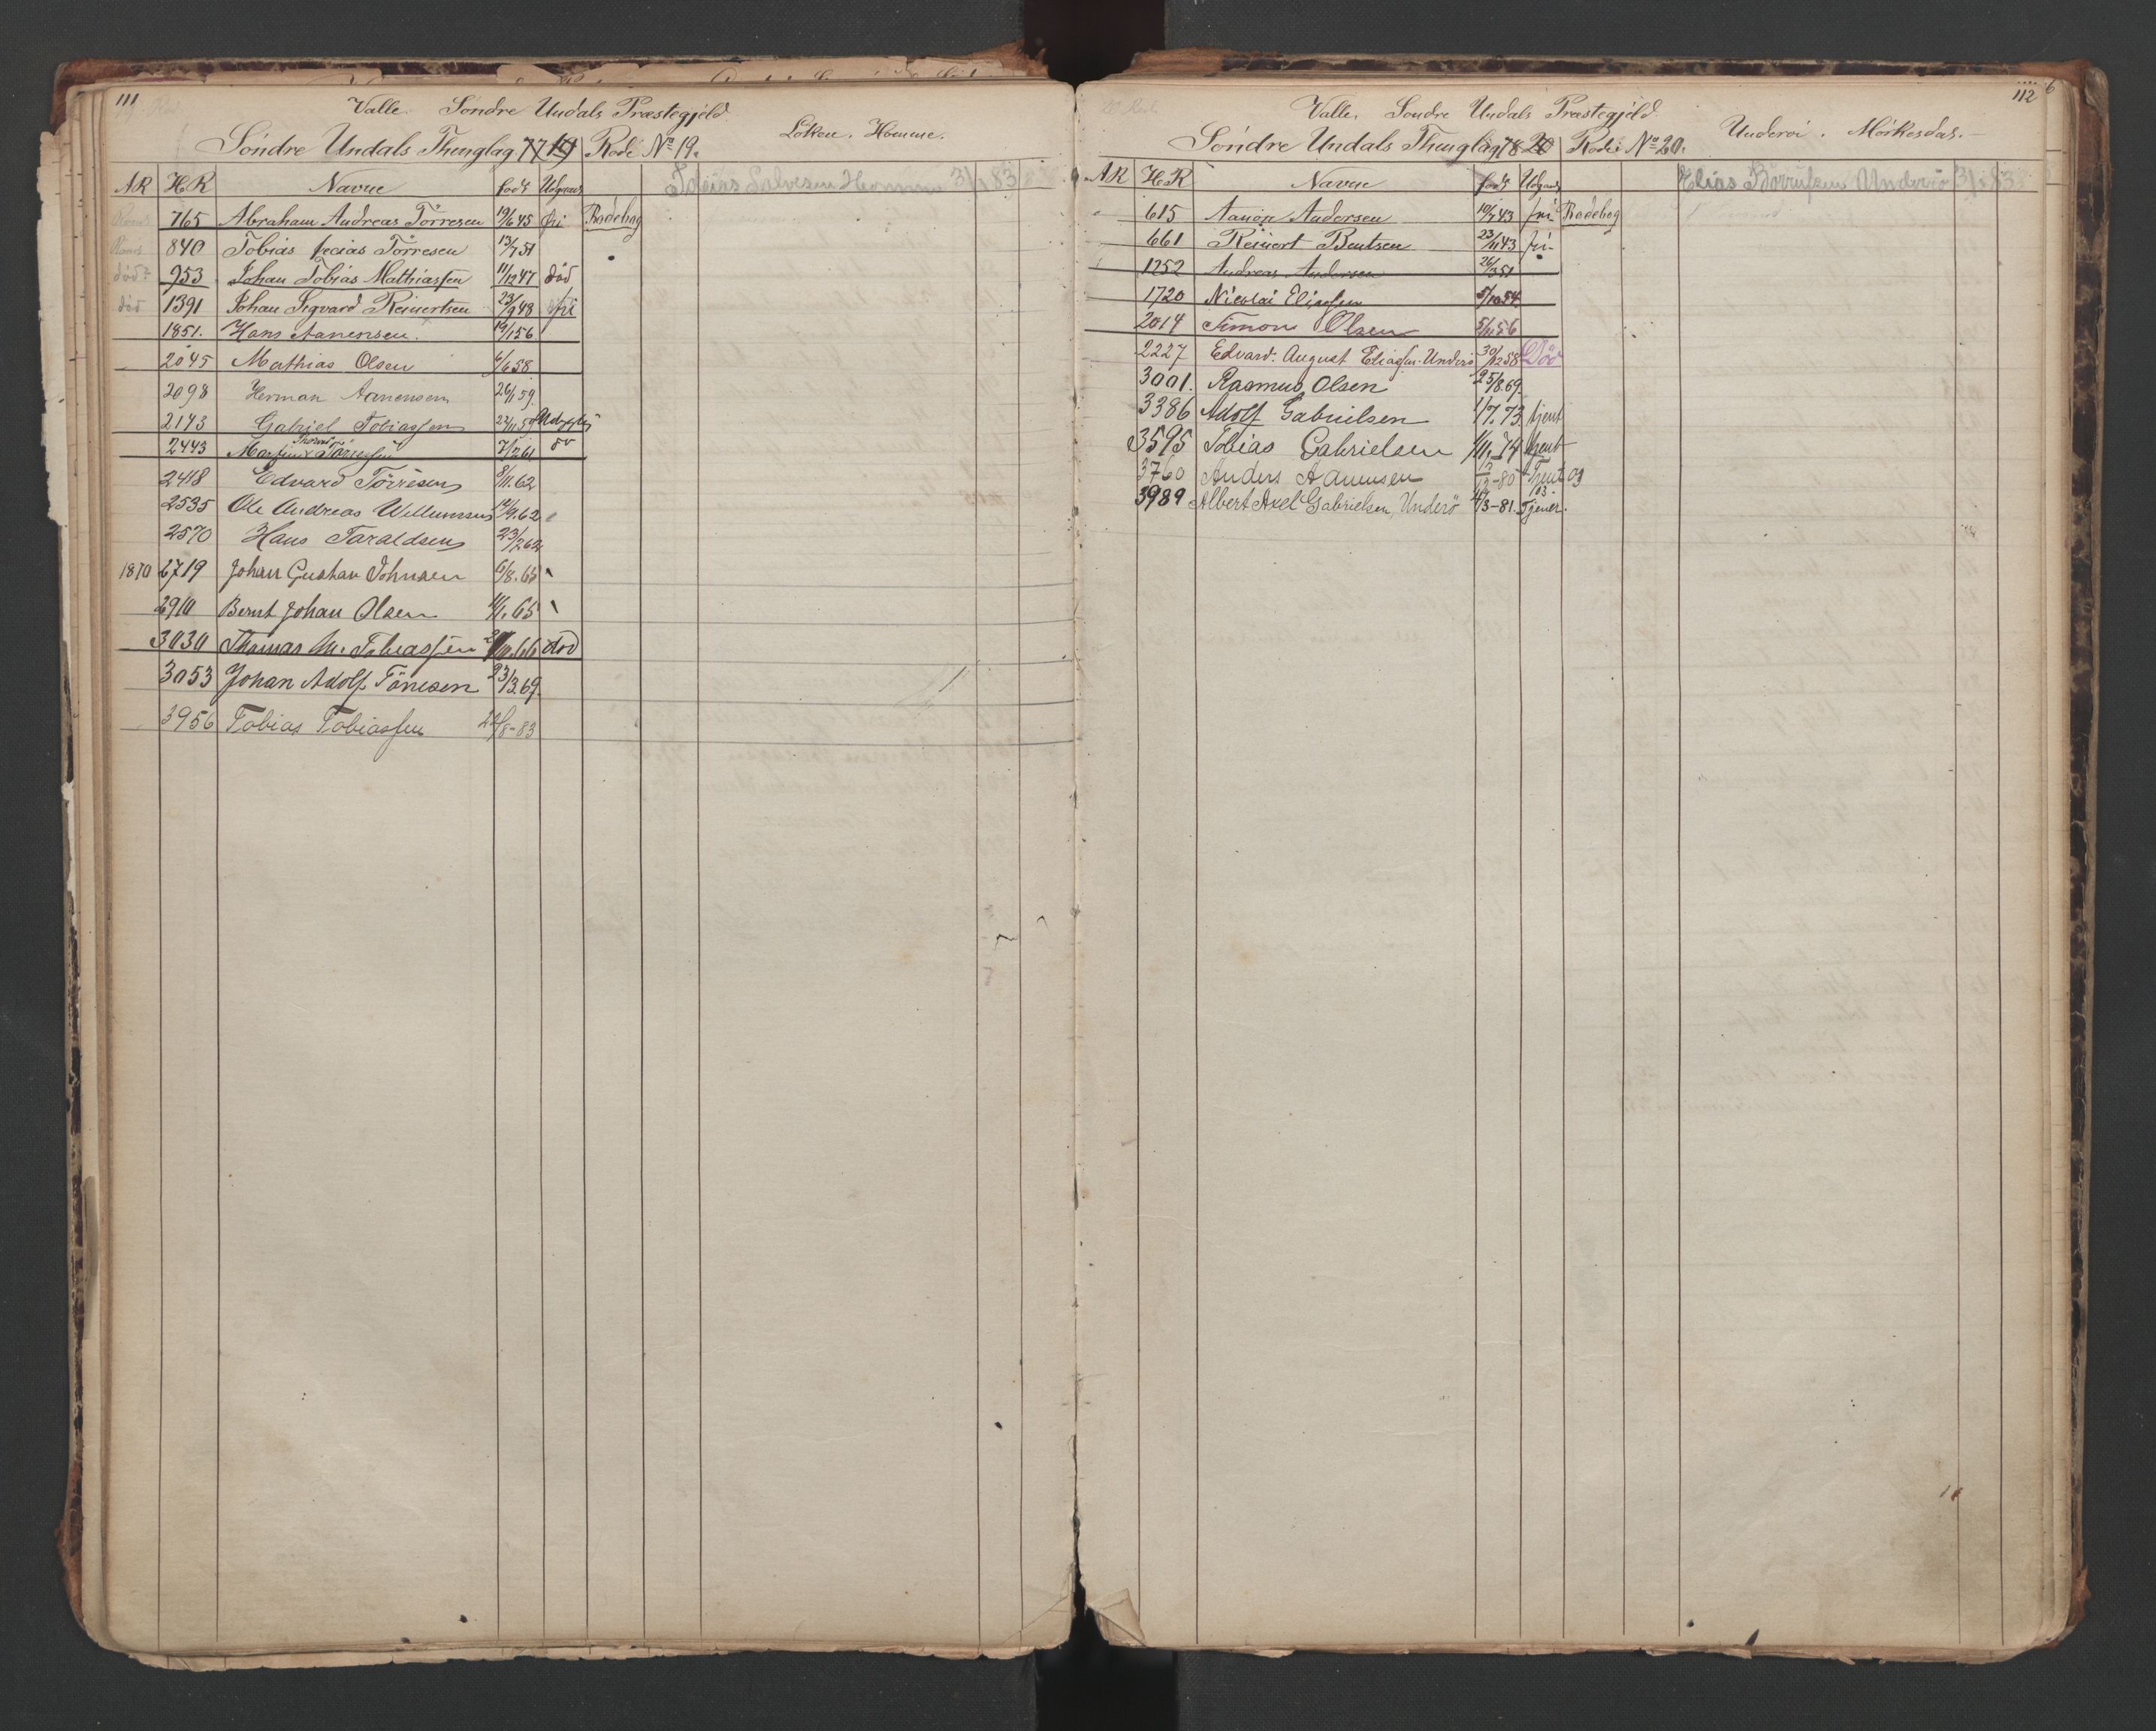 111
Valle. Søndre Undals Præstegjeld
Løkon. Homme.
Søndre Undals Thinglag 77 19 Rode No 19.
AR HR Navne født Udgaaet
Salvesen Homme 83
765 Abraham Andreas Tørresen 19/6 45 fri Rodebog
840 Tobias Tørresen 13/7 51
død 953 Johan Tobias Mathiassen 11/12 47 død
død 1391 Johan Sigvard Reinertsen 23/9 48 fri
1851. Hans Aanensen. 19/1 56
2045 Mathias Olsen 6/6 58
2098 Herman Aanensen 26/1 59.
2143 Gabriel Tobiassen
2443 Martin Tønnessen 7/2 61
2418 Edvard Tørresen 8/11.62
2535 Ole Andreas Willumsen /9.62
2570 Hans Taraldsen 23/12 62
1870 2719 Johan Gustav Johnsen 6/8.65
2910 Bernt Johan Olsen /1.65
3030 Thomas M. Tobiassen .66 død
3053 Johan Adolf Tønnesen 23/3.69.
3956 Tobias Tobiassen 22/8-83
112
6
Valle. Søndre Undals Præstegjeld
Underøi. Mörkesdal.
Søndre Undals Thinglag 78 20 Rode No 20.
AR HR Navne født Udgaaet
Elias Underø 83
615 Aanon Andersen 10/7 43 fri Rodebog
661 Reinert Bentsen 23/11 43 fri
1252 Andreas Andersen 26/3 51
1720 Nicolai Eliassen 5/10 54
2014 Simon Olsen 5/11 56
2227 Edvard August Eliassen Underø 30/12 58 Død
3001. Rasmus Olsen 25/8 69.
3386 Adolf Gabrielsen 1/7.73 tjent
3595 Tobias Gabrielsen 1/11.74 tjent
3760 Anders Aanensen 12/12-80 Tjent 03
3989 Albert Axel Gabrielsen, Underø 4/3-81. Tjener. 03